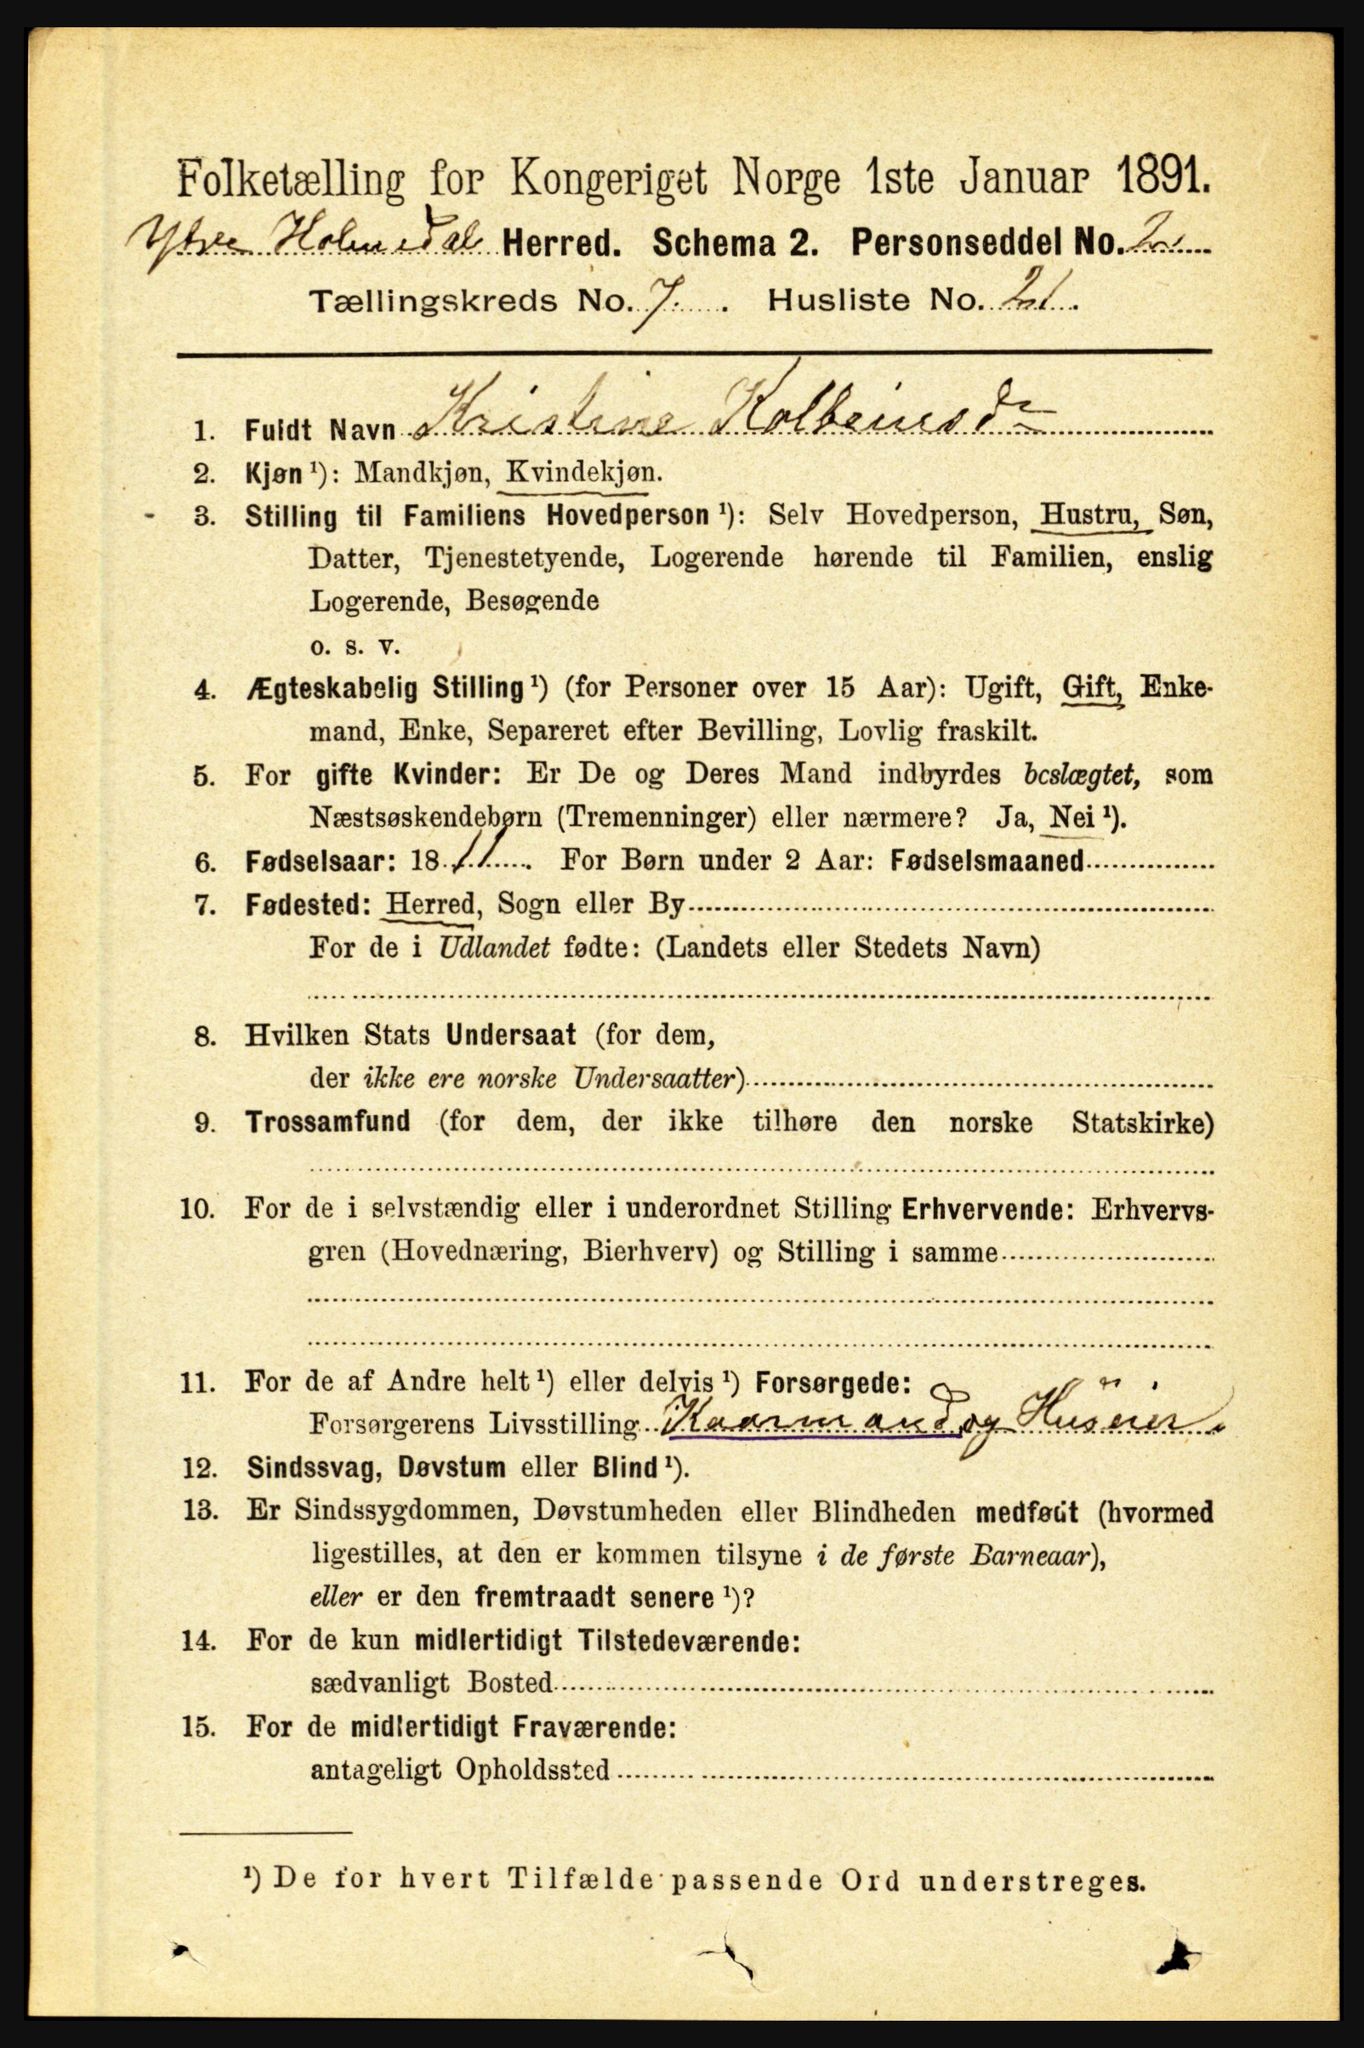 Folketælling for Kongeriget Norge 1ste Januar 1891.
Ytre Holmedal Herred. Schema 2. Personseddel No. 2
Tællingskreds No. 7. Husliste No. 21.
1. Fuldt Navn Kristine Kolbeinsdr
2. Kjøn ¹): Mandkjøn, Kvindekjøn.
3. Stilling til Familiens Hovedperson ¹): Selv Hovedperson, Hustru, Søn,
Datter, Tjenestetyende, Logerende hørende til Familien, enslig
Logerende, Besøgende
o. s. v.
4. Ægteskabelig Stilling ¹) (for Personer over 15 Aar): Ugift, Gift, Enke-
mand, Enke, Separeret efter Bevilling, Lovlig fraskilt.
5. For gifte Kvinder: Er De og Deres Mand indbyrdes beslægtet, som
Næstsøskendebørn (Tremenninger) eller nærmere? Ja, Nei ¹).
6. Fødselsaar: 1811. For Børn under 2 Aar: Fødselsmaaned
7. Fødested: Herred, Sogn eller By
For de i Udlandet fødte: (Landets eller Stedets Navn)
8. Hvilken Stats Undersaat (for dem,
der ikke ere norske Undersaatter)
9. Trossamfund (for dem, der ikke tilhøre den norske Statskirke)
10. For de i selvstændig eller i underordnet Stilling Erhvervende: Erhvervs-
gren (Hovednæring, Bierhverv) og Stilling i samme
11. For de af Andre helt ¹) eller delvis ¹) Forsørgede:
Forsørgerens Livsstilling Kaarmand og Huseier.
12. Sindssvag, Døvstum eller Blind ¹).
13. Er Sindssygdommen, Døvstumheden eller Blindheden medfødt (hvormed
ligestilles, at den er kommen tilsyne i de første Barneaar),
eller er den fremtraadt senere ¹)?
14. For de kun midlertidigt Tilstedeværende:
sædvanligt Bosted
15. For de midlertidigt Fraværende:
antageligt Opholdssted
¹) De for hvert Tilfælde passende Ord understreges.